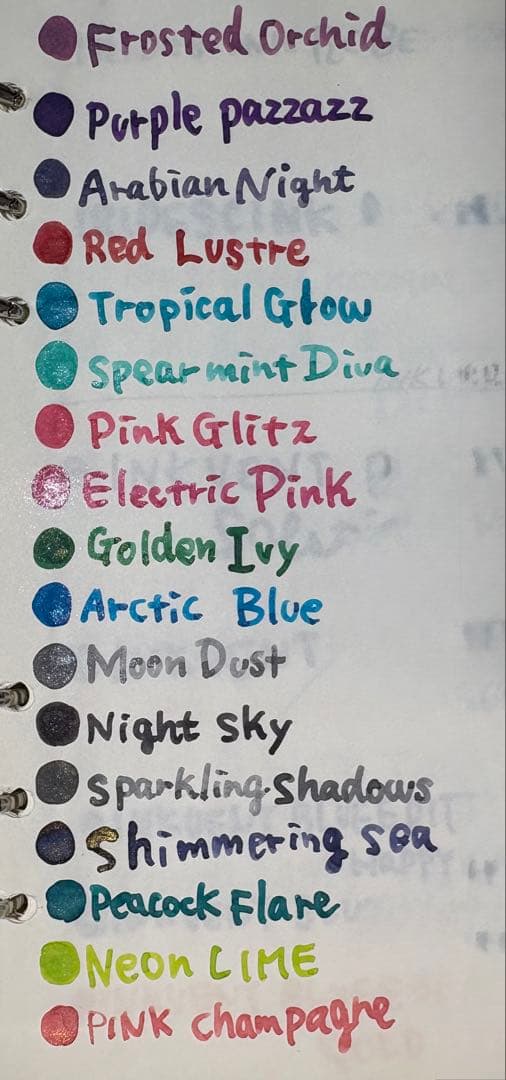 Frosted Orchid
Purple pazzazz
Arabian Night
Red Lustre
Tropical Glow
Spearmint Diva
Pink Glitz
Electric Pink
Golden Ivy
Arctic Blue
Moon Dust
Night Sky
Sparkling Shadows
Shimmering sea
Peacock Flare
Neon LIME
PINK champagne